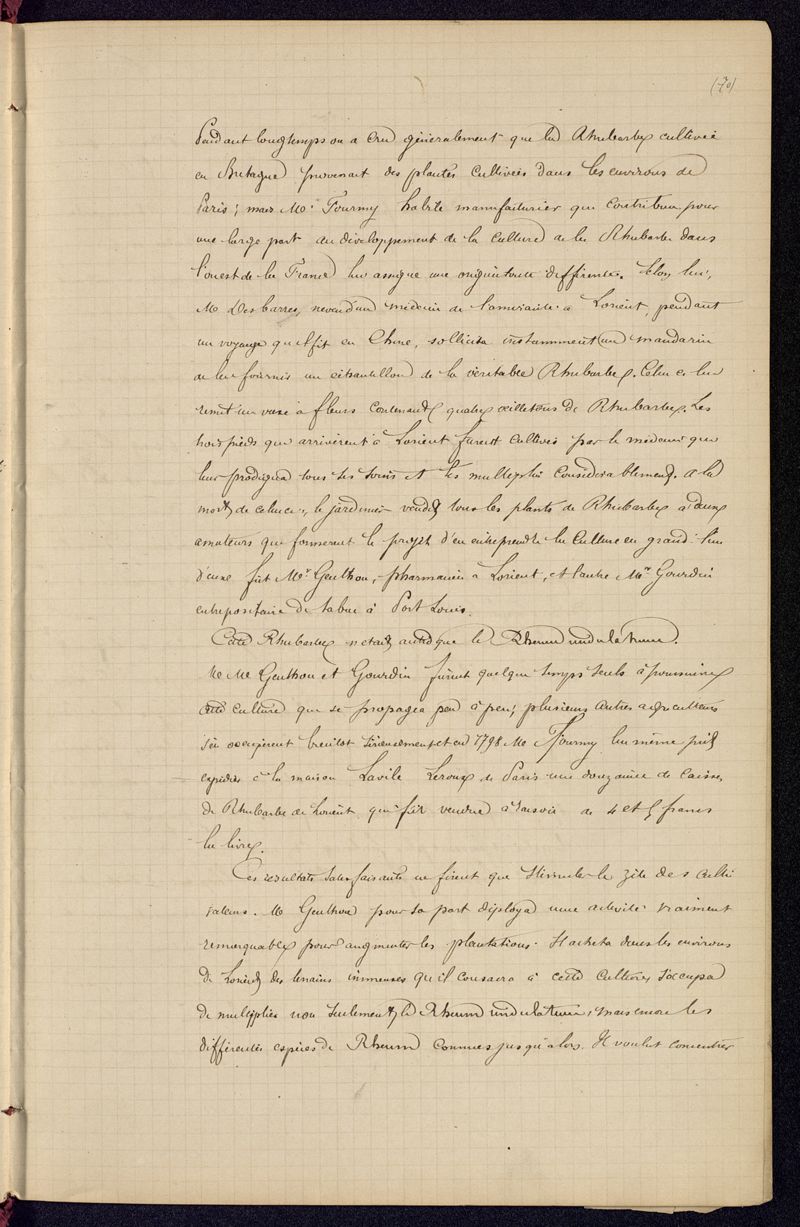 (70)
Pendant longtemps on a cru généralement que la Rhubarbe cultivée
en Bretagne provenait des plantes cultivées dans les environs de
Paris ; mais Mr Fourmy habile manufacturier qui contribua pour
une large part au développement de la culture de la Rhubarbe dans
l'ouest de la France lui assigne une origine toute différente. Selon lui,
Mr Desbarres, neveu d'un médecin de l'amirauté à Lorient, pendant
un voyage qu'il fit en Chine, sollicita instamment un mandarin
de lui fournir un échantillon de la véritable Rhubarbe. Celui ci lui
remit un vase à fleurs contenant quatre œilletons de Rhubarbe. Les
trois pieds qui arrivèrent à Lorient furent cultivés par le médecin qui
leur prodigua tous ses soins et les multiplia considérablement. A la
mort de celui ci, le jardinier vendit tous les plants de Rhubarbe à deux
amateurs qui formèrent le projet d'en entreprendre la culture en grand. l'un
d'eux fut Mr Genthon, pharmacien à Lorient, et l'autre Mr Gourdin
entrepositaire de tabac à Port Louis.
Cette Rhubarbe n'était autre que le Rheum undulatum.
M. M. Genthon et Gourdin furent quelque temps seuls à poursuivre
cette culture qui se propagea peu à peu ; plusieurs autres agriculteurs
s'en occupèrent bientôt sérieusement et en 1798 Mr Fourmy lui même put
expédier à la maison Lavile Leroux de Paris une douzaine de caisses
de Rhubarbe de Lorient qui fut vendue à raison de 4 et 5 francs
la livre.
Ces résultats satisfaisants ne firent que stimuler le zèle des culti
vateurs. Mr Genthon pour sa part déploya une activité vraiment
remarquable pour augmenter les plantations. Il acheta dans les environs
de Lorient des terrains immenses qu'il consacra à cette culture, s'occupa
de multiplier non seulement le Rheum undulatum, mais encore les
différentes espèces de Rheum connues jusqu'alors. Il voulut concentrer